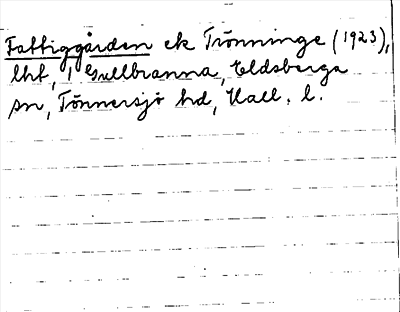 Fattiggården ek Trönninge (1923),
lht, 1 Gullbranna, Eldsberga
sn, Tönnersjö hd, Hall. l.